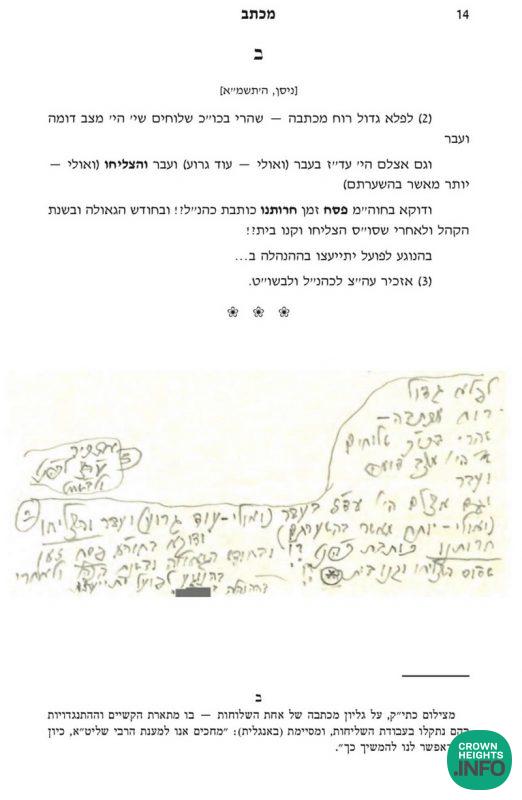 14
מכתב
ב
[ניסן, ה'תשמ"א]
(2) לפלא גדול רוח מכתבה — שהרי בכו"כ שלוחים שי' הי' מצב דומה
ועבר
וגם אצלם הי' עד"ז בעבר (ואולי — עוד גרוע) ועבר והצליחו (ואולי —
יותר מאשר בהשערתם)
ודוקא בחוה"מ פסח זמן חרותנו כותבת כהנ"ל?! ובחודש הגאולה ובשנת
הקהל ולאחרי שסו"ס הצליחו וקנו בית?!
בהנוגע לפועל יתייעצו בההנהלה ב...
(3) אזכיר עה"צ לכהנ"ל ולבשו"ט.
לפלא גדול
רוח מכתבה —
שהרי בכו"כ שלוחים
שי' הי' מצב דומה
ועבר
וגם אצלם הי' עד"ז בעבר (ואולי — עוד גרוע) ועבר והצליחו
(ואולי — יותר מאשר בהשערתם)
ודוקא בחוה"מ פסח זמן
חרותנו כותבת כהנ"ל?!
ובחודש הגאולה ובשנת הקהל ולאחרי
שסו"ס הצליחו וקנו בית?!
בהנוגע לפועל יתייעצו
בההנהלה ב
2
3
אזכיר
עה"צ לכהנ"ל
ולבשו"ט
ב
מצילום כתי"ק, על גליון מכתבה של אחת השלוחות — בו מתארת הקשיים וההתנגדויות
בהם נתקלו בעבודת השליחות, ומסיימת (באנגלית): "מחכים אנו למענת הרבי שליט"א, כיון
אפשר לנו להמשיך כך".
CROWN
HEIGHTS
.INFO